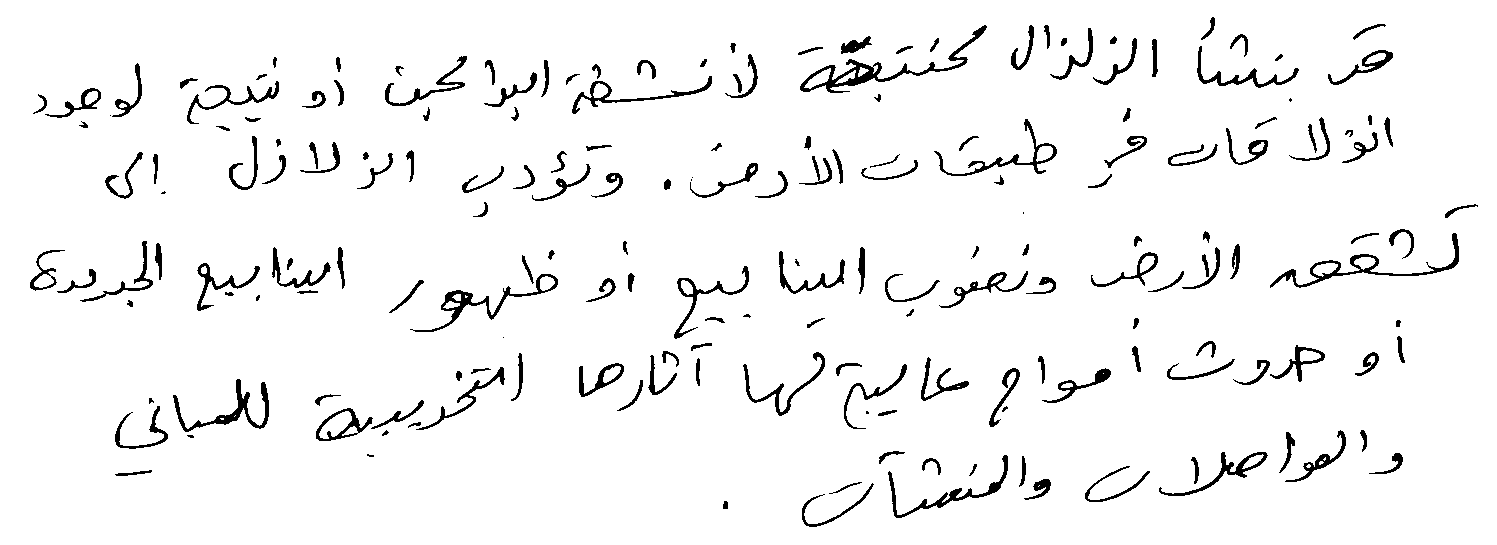 قد ينشأ الزلزال كنتيجة لأنشطة البراكين أو نتيجة لوجود
انزلاقات في طبقات الأرض. وتؤدي الزلازل إلى
تشقق الأرض ونضوب الينابيع أو ظهور الينابيع الجديدة
أو حدوث أمواج عالية لها آثارها التخريبية للمباني
والمواصلات والمنشآت.